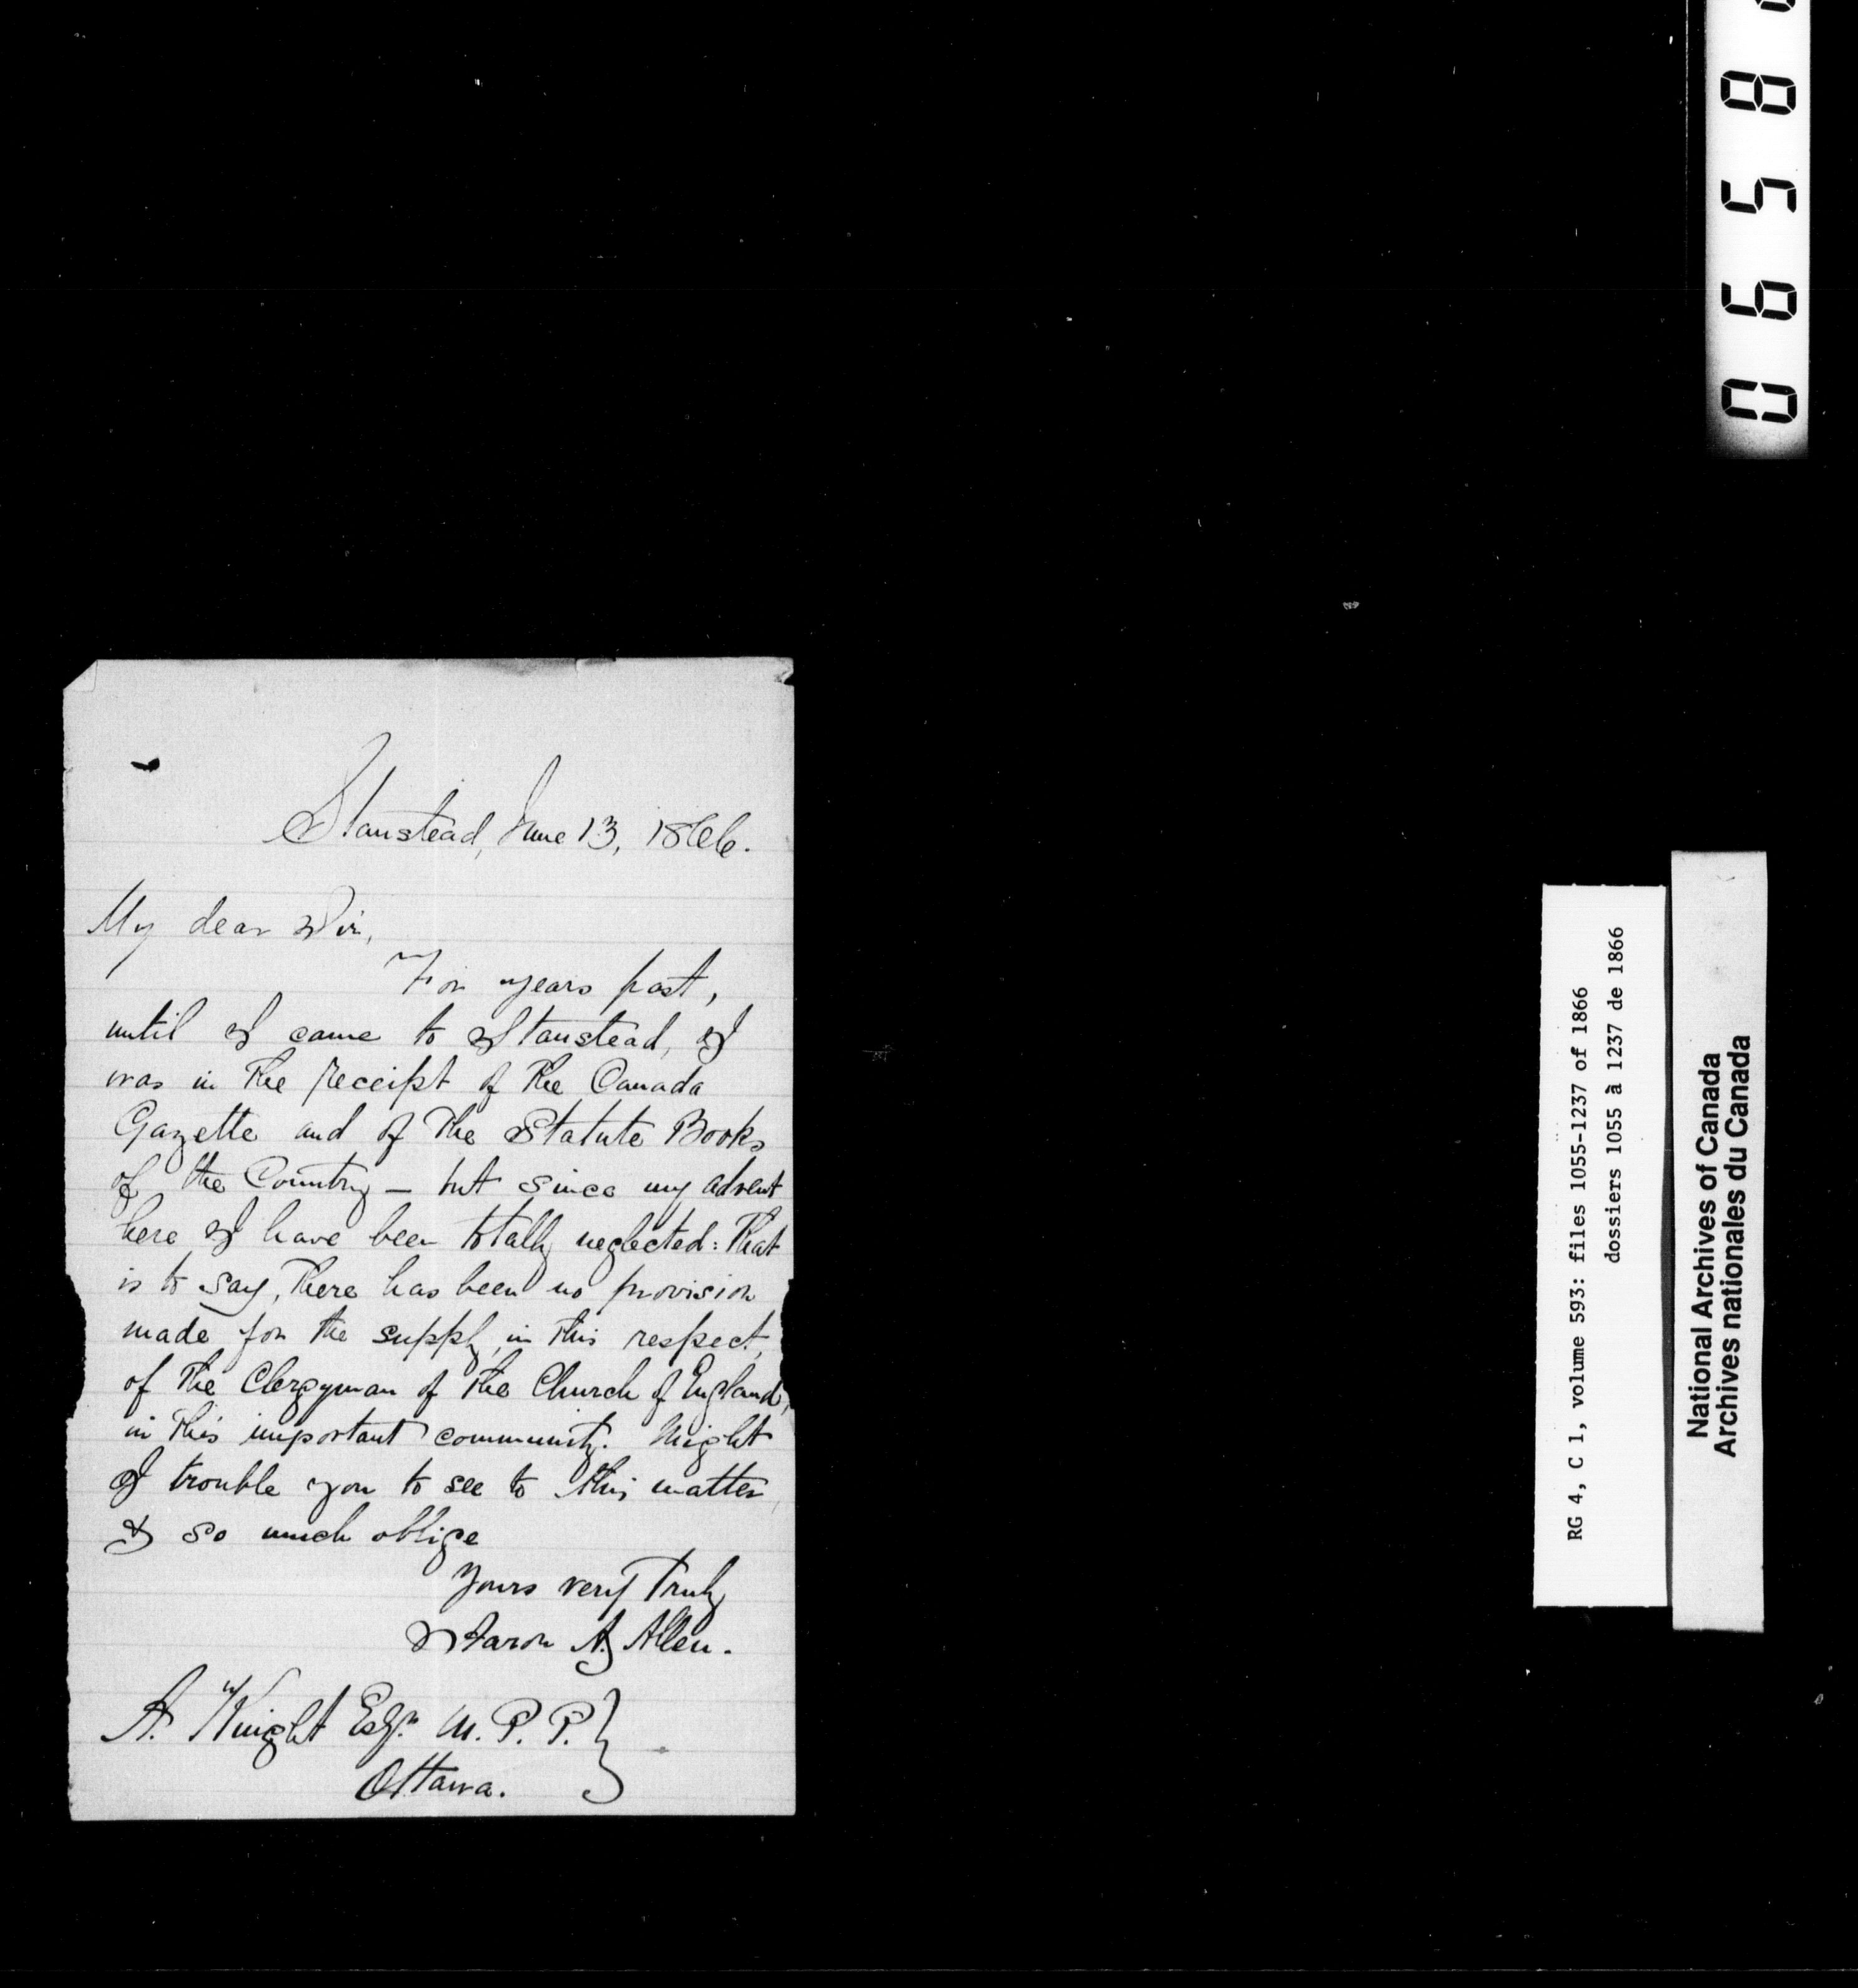 Stanstead, June 13, 1866.
My dear Sir,
For years past,
until I came to Stanstead, I
was in the receipt of the Canada
Gazette and of the Statute Books
of the Country — but since my advent
here I have been totally neglected: That
is to say, there has been no provision
made for the supply, in this respect,
of the Clergyman of the Church of England,
in this important community. Might
I trouble you to see to this matter,
& so much oblige
Yours very truly
Aaron A. Allen.
A. Knight Esqr. M. P. P.
Ottawa.
0658
RG 4, C 1, volume 593: files 1055-1237 of 1866
dossiers 1055 à 1237 de 1866
National Archives of Canada
Archives nationales du Canada